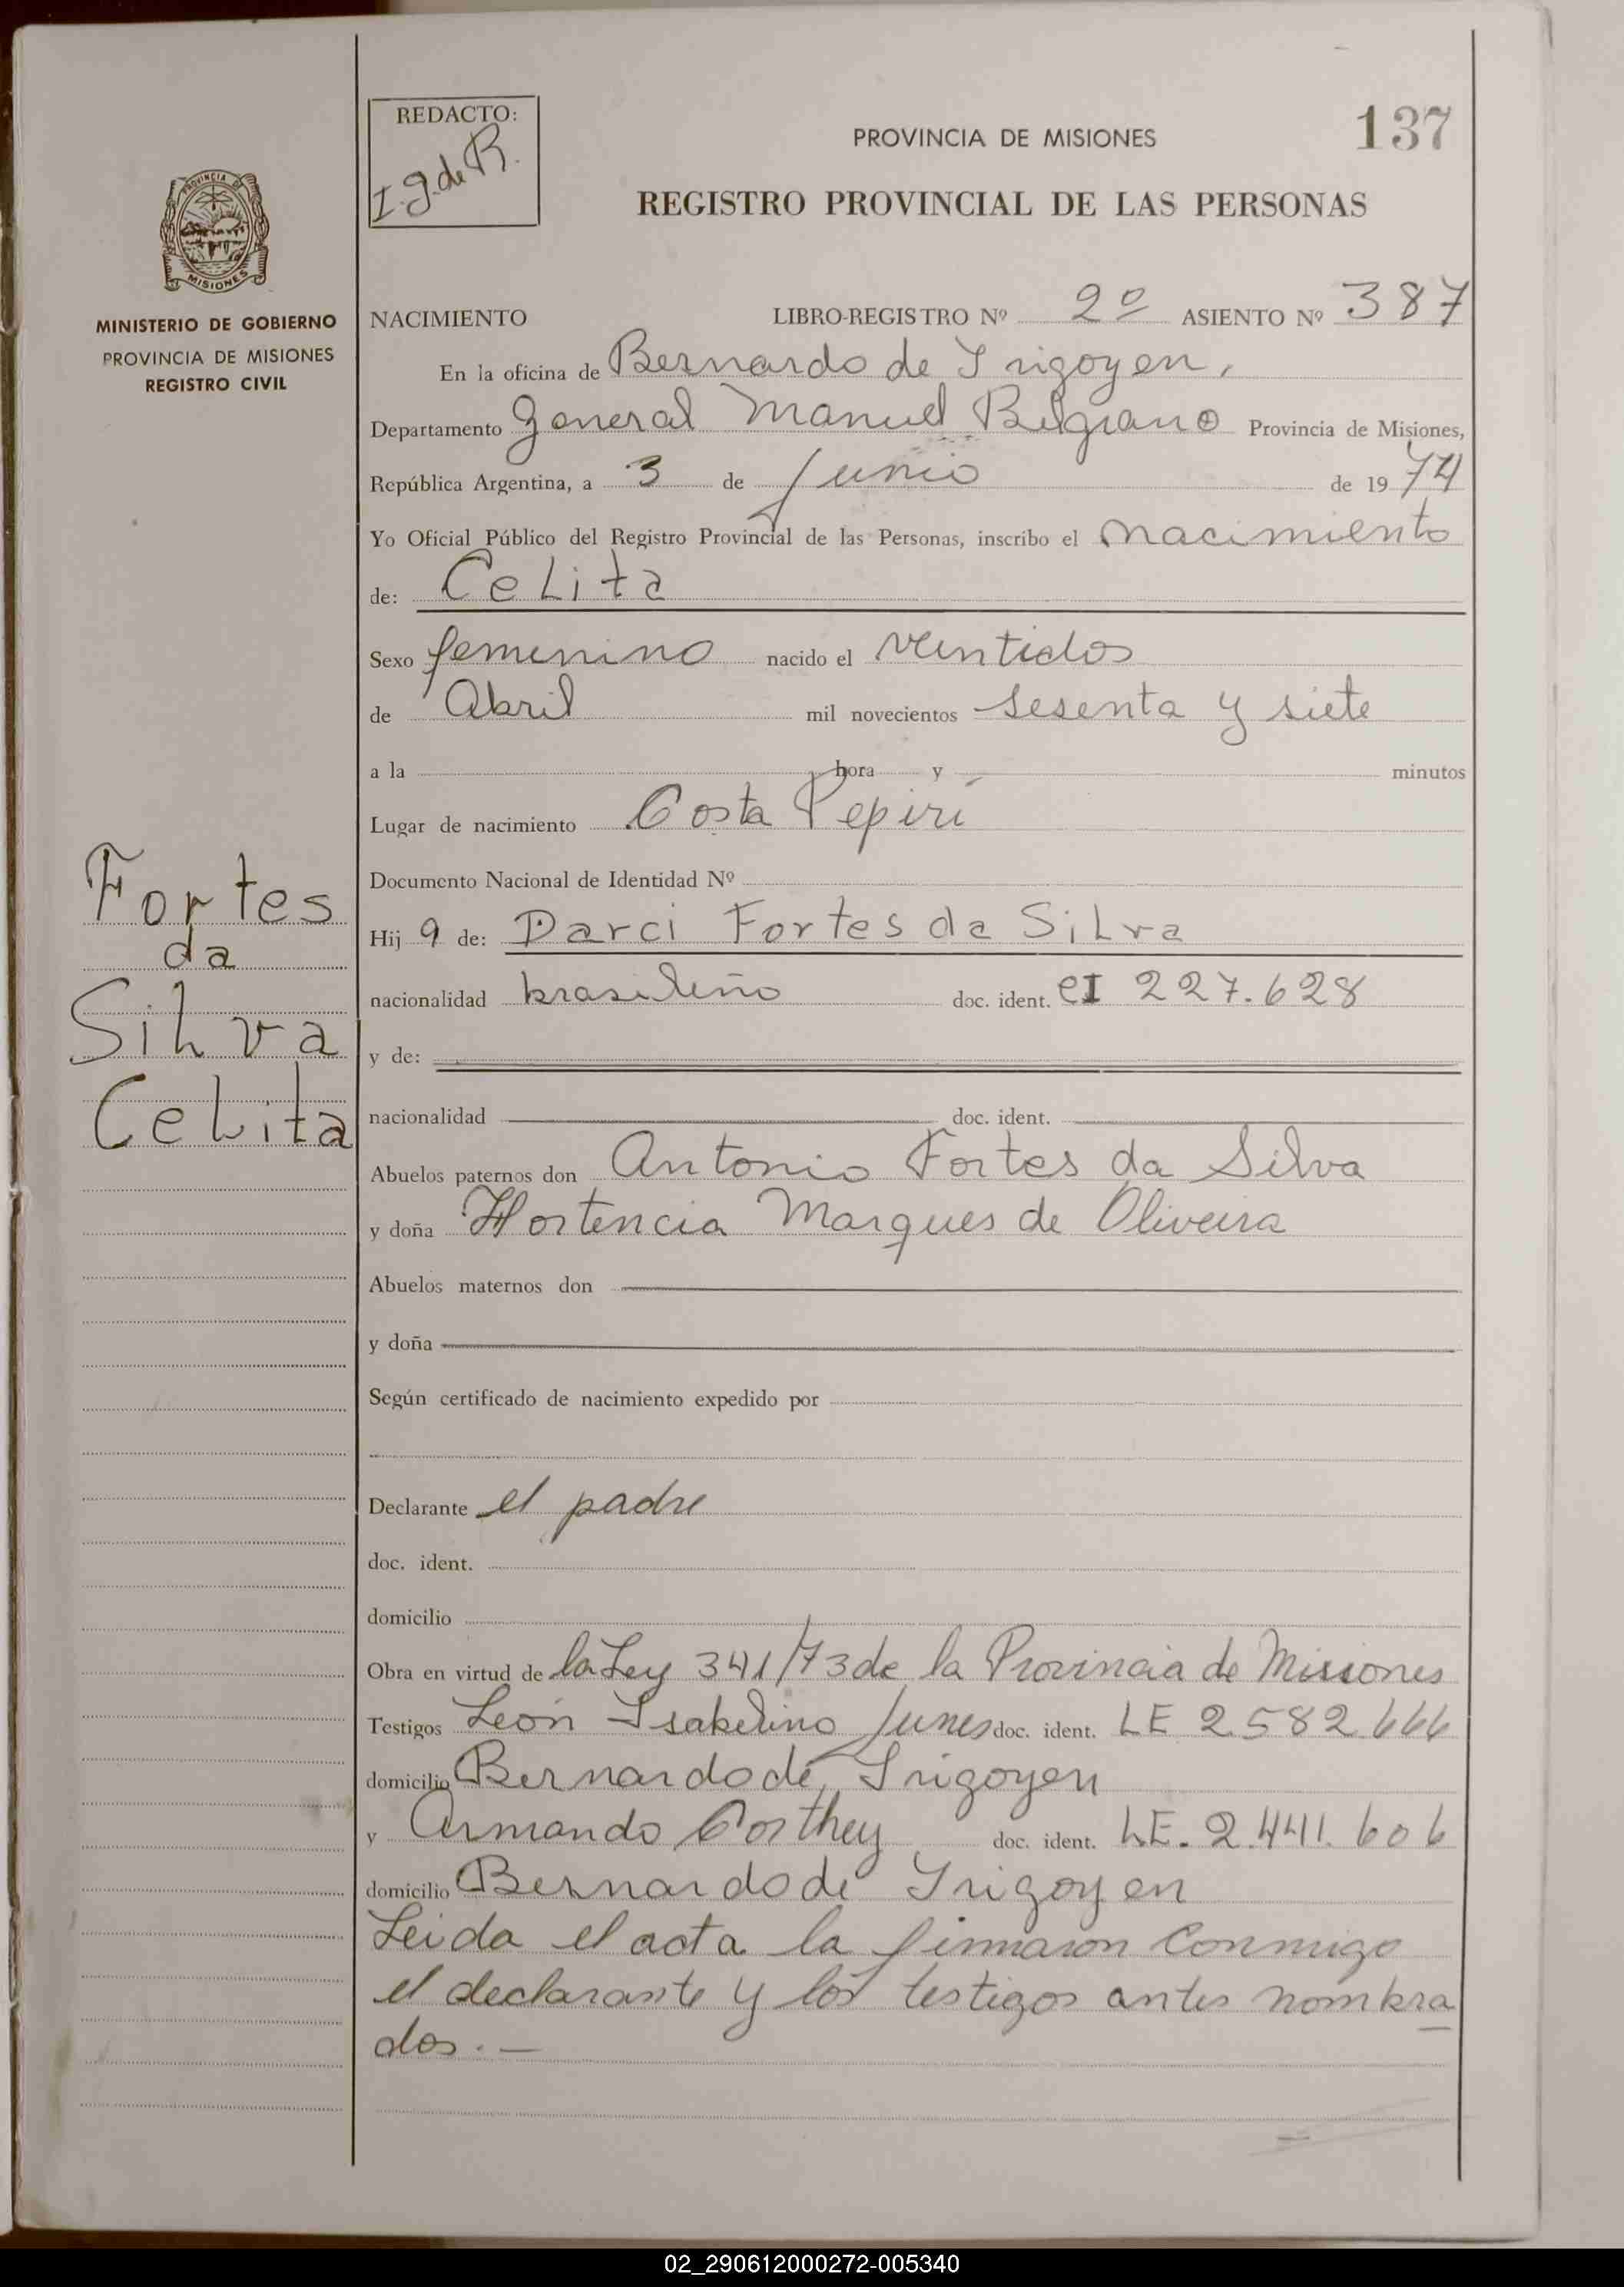 REDACTO:
I. g. de R.
137
PROVINCIA DE MISIONES
REGISTRO PROVINCIAL DE LAS PERSONAS
PROVINCIA DE
MISIONES
MINISTERIO DE GOBIERNO
PROVINCIA DE MISIONES
REGISTRO CIVIL
NACIMIENTO LIBRO-REGISTRO Nº 2º ASIENTO Nº 387
En la oficina de Bernardo de Irigoyen,
Departamento General Manuel Belgrano Provincia de Misiones,
República Argentina, a 3 de Junio de 1974
Yo Oficial Público del Registro Provincial de las Personas, inscribo el nacimiento
de: Celita
Sexo femenino nacido el veintidos
de Abril mil novecientos sesenta y siete
a la hora y minutos
Lugar de nacimiento Costa Pepirí
Documento Nacional de Identidad Nº
Hija de: Darci Fortes da Silva
nacionalidad brasileño doc. ident. CI 227.628
y de:
nacionalidad doc. ident.
Abuelos paternos don Antonio Fortes da Silva
y doña Hortencia Marques de Oliveira
Abuelos maternos don
y doña
Según certificado de nacimiento expedido por
Declarante el padre
doc. ident.
domicilio
Obra en virtud de la Ley 341/73 de la Provincia de Misiones
Testigos León Isabelino Junes doc. ident. LE 2582666
domicilio Bernardo de Irigoyen
y Armando Corthey doc. ident. LE. 2.441.606
domicilio Bernardo de Irigoyen
Leida el acta la firmaron conmigo
el declarante y los testigos antes nombra
dos. —
Fortes
da
Silva
Celita
02_290612000272-005340